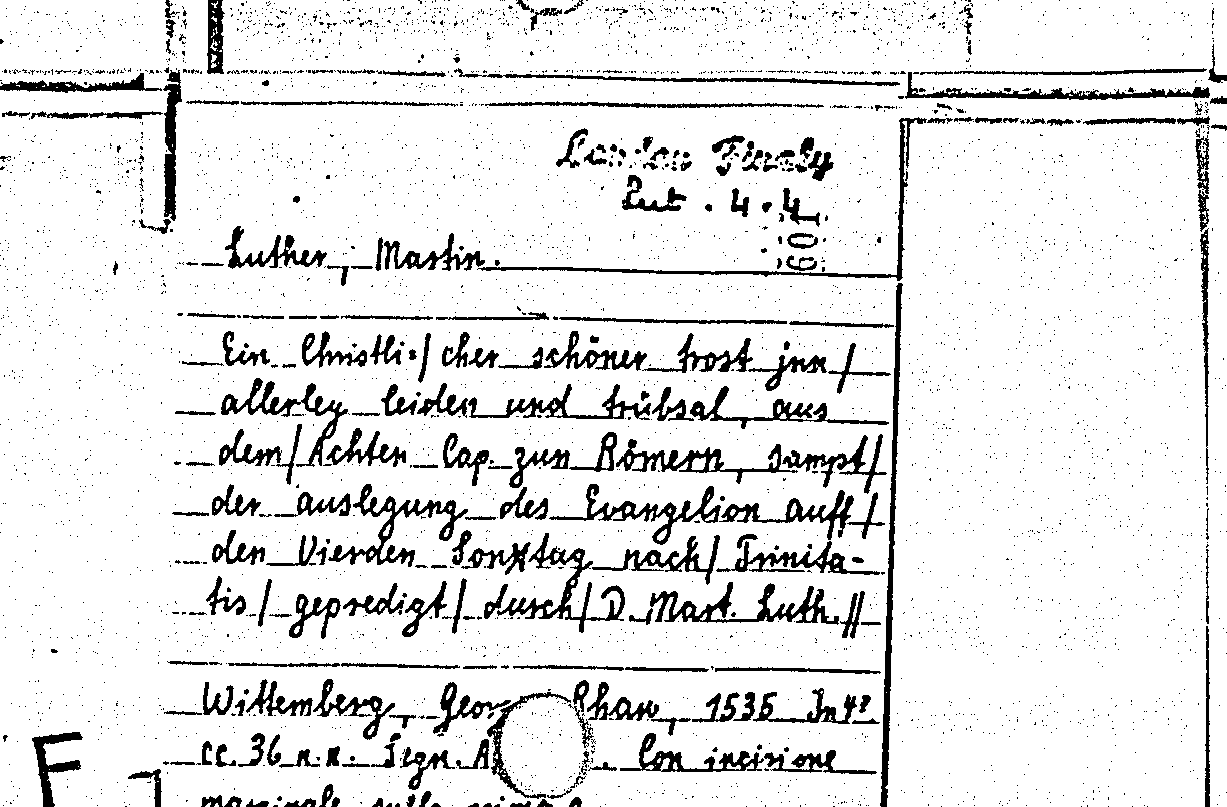 London Finsby
Lut. 4.4
109
Luther, Martin.
Ein Christli=/cher schöner trost jnn/
allerley leiden und trübsal, aus
dem/Achten Cap. zun Römern, sampt/
der auslegung des Evangelion auff/
den Vierden Sontag nach/ Trinita-
tis/ gepredigt/ durch/ D. Mart. Luth.//
Wittemberg, Georg Rhaw, 1535 In 4º
cc. 36 n.n. Segn. A . Con incisione
marginale sulla prima c